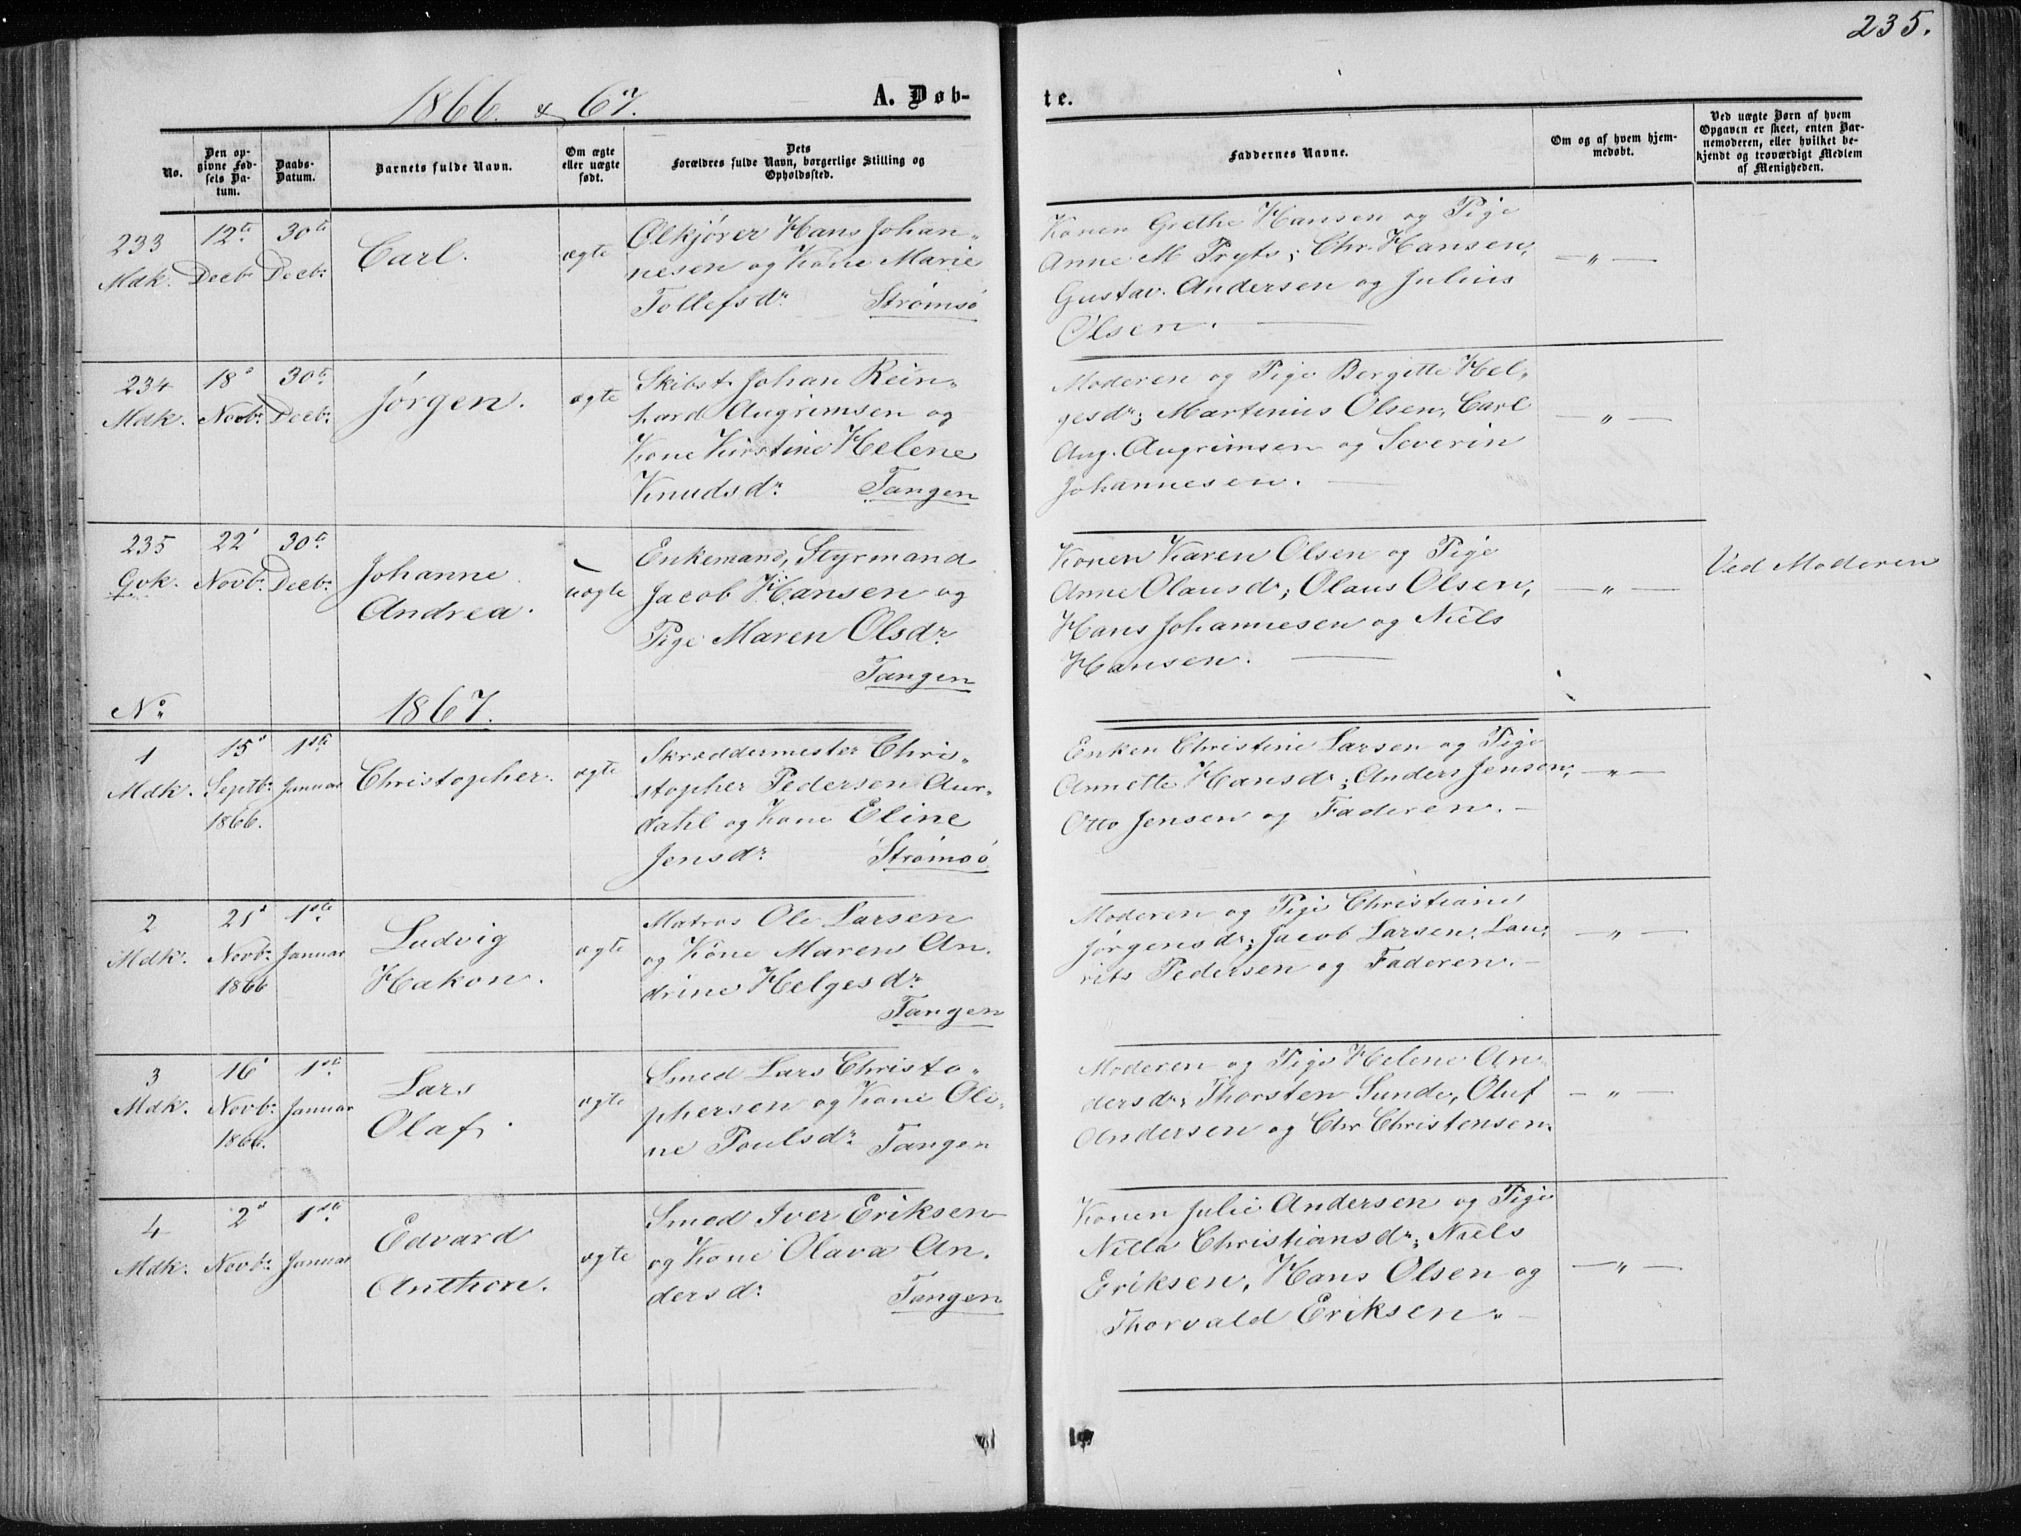 235.
1866. & 67. A. Døb- te.
No.
Den op-
givne Fød-
sels Da-
tum.
Daabs-
Datum.
Barnets fulde Navn.
Om ægte
eller uægte
født.
Dets
Forældres fulde Navn, borgerlige Stilling og
Opholdssted.
Faddernes Navne.
Om og af hvem hjem-
medøbt.
Ved uægte Børn af hvem
Opgaven er skeet, enten Bar-
nemoderen, eller hvilket be-
kjendt og troværdigt Medlem
af Menigheden.
233
Mdk.
12te
Decb
30te
Decbr
Carl.
ægte
Ølkjører Hans Johan-
nesen og Kone Marie
Tollefsdr Strømsø
Konen Grethe Hansen og Pige
Anne M Pryts; Chr. Hansen,
Gustav Andersen og Julius
Olsen.
— " —
234
Mdk.
18de
Novbr
30te
Decbr
Jørgen.
ægte
Skibst. Johan Rein-
hard Augrimsen og
Kone Kirstine Helene
Knudsdr Tangen
Moderen og Pige Bergitte Hel-
gesdr; Martinius Olsen, Carl
Aug. Augrimsen og Severin
Johannesen.
— " —
235
Qvk.
22de
Novbr
30te
Decbr
Johanne
Andrea.
uægte
Enkemand, Styrmand
Jacob Hansen og
Pige Maren Olsdr
Tangen
Konen Karen Olsen og Pige
Anne Olausdr; Olaus Olsen,
Hans Johannesen og Niels
Hansen.
— " —
Ved Moderen
No 1867.
1
Mdk.
15de
Septbr
1866.
1ste
Januar
Christopher.
ægte
Skræddermester Chris-
topher Pedersen Aur-
dahl og Kone Eline
Jensdr Strømsø
Enken Christine Larsen og Pige
Annette Hansdr; Anders Jensen,
Otto Jensen og Faderen. —
— " —
2
Mdk.
21de
Novbr
1866
1ste
Januar
Ludvig
Hakon.
ægte
Matros Ole Larsen
og Kone Maren An-
drine Helgesdr
Tangen
Moderen og Pige Christiane
Jørgensdr; Jacob Larsen, Lau-
rits Pedersen og Faderen. —
— " —
3
Mdk.
16de
Novbr
1866.
1ste
Januar
Lars
Olaf.
ægte
Smed Lars Christo-
phersen og Kone Oli-
ne Poulsdr Tangen
Moderen og Pige Helene An-
dersdr; Thorsten Sunde, Oluf
Andersen og Chr Christensen.
— " —
4
Mdk.
2de
Novbr
1ste
Januar
Edvard
Anthon.
ægte
Smed Iver Eriksen
og Kone Olava An-
dersdr Tangen
Konen Julie Andersen og Pige
Nilla Christiansdr; Niels
Eriksen, Hans Olsen og
Thorvald Eriksen. —
— " —